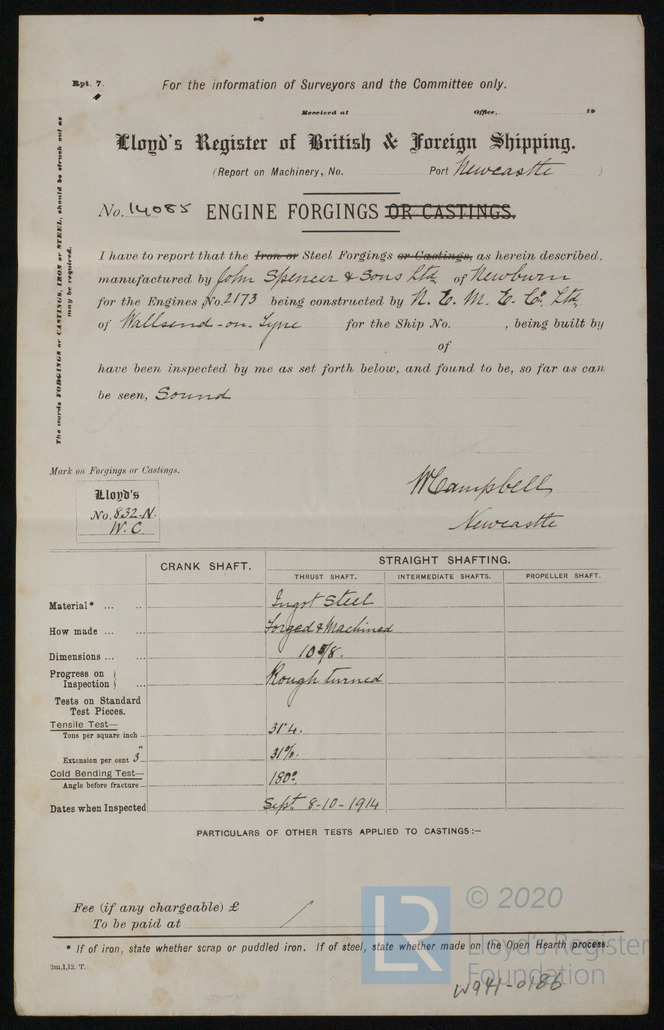 Rpt. 7.
For the information of Surveyors and the Committee only.
Received at Office, 19
Lloyd's Register of British & Foreign Shipping.
(Report on Machinery, No. Port Newcastle )
No. 14085 ENGINE FORGINGS OR CASTINGS.
The words FORGINGS or CASTINGS, IRON or STEEL, should be struck out as may be required.
I have to report that the Iron or Steel Forgings or Castings, as herein described,
manufactured by John Spencer & Sons Ltd of Newburn
for the Engines No. 2173 being constructed by N. E. M. E. Co. Ltd
of Wallsend-on-Tyne for the Ship No. , being built by
of
have been inspected by me as set forth below, and found to be, so far as can
be seen, Sound
Mark on Forgings or Castings.
Lloyd's
No. 832-N.
W. C.
W Campbell
Newcastle
CRANK SHAFT. STRAIGHT SHAFTING.
THRUST SHAFT. INTERMEDIATE SHAFTS. PROPELLER SHAFT.
Material* ... ... Ingot Steel
How made ... ... Forged & Machined
Dimensions ... ... 10 5/8.
Progress on Inspection } ... Rough turned
Tests on Standard
Test Pieces.
Tensile Test—
Tons per square inch ... 31·4.
Extension per cent 3" ... 31%.
Cold Bending Test—
Angle before fracture ... 180°.
Dates when Inspected Sept. 8-10-1914
PARTICULARS OF OTHER TESTS APPLIED TO CASTINGS:—
Fee (if any chargeable) £
To be paid at /
* If of iron, state whether scrap or puddled iron. If of steel, state whether made on the Open Hearth process.
7m,1,12. T.
LR
© 2020
Lloyd's Register
Foundation
W941-0186